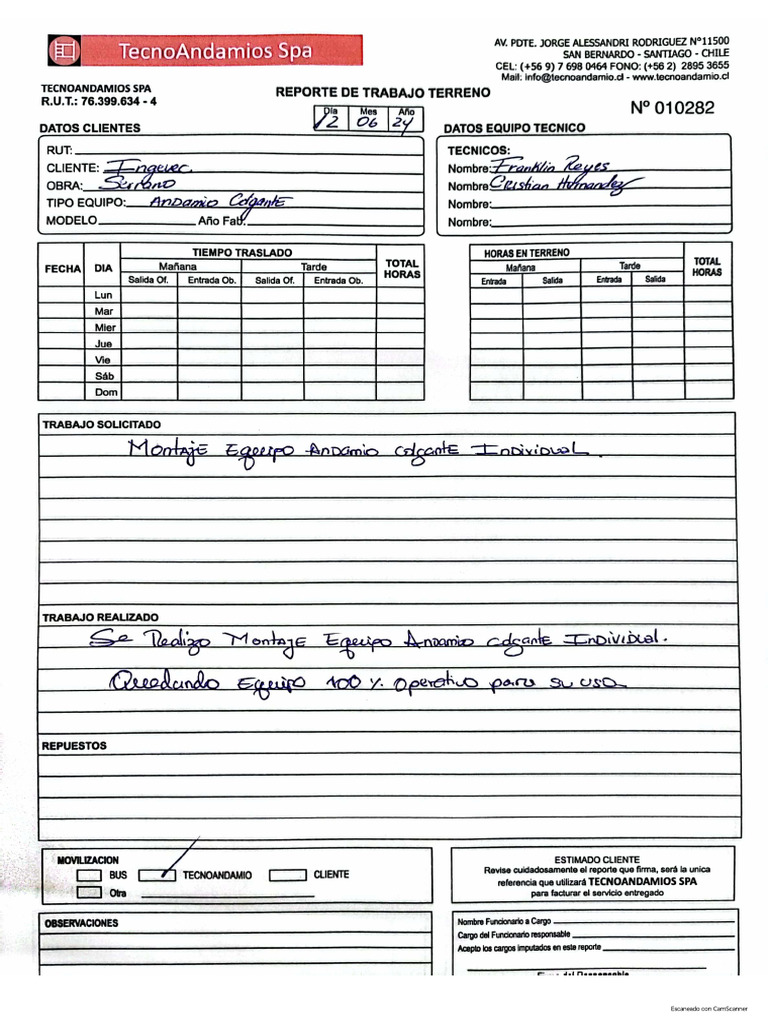 TecnoAndamios Spa
AV. PDTE. JORGE ALESSANDRI RODRIGUEZ N°11500
SAN BERNARDO - SANTIAGO - CHILE
CEL: (+56 9) 7 698 0464 FONO: (+56 2) 2895 3655
Mail: info@tecnoandamio.cl - www.tecnoandamio.cl
TECNOANDAMIOS SPA
R.U.T.: 76.399.634 - 4
REPORTE DE TRABAJO TERRENO
Nº 010282
Día Mes Año
12 06 24
DATOS CLIENTES
RUT:
CLIENTE: Ingevec.
OBRA: Serrano
TIPO EQUIPO: Andamio Colgante
MODELO Año Fab.
DATOS EQUIPO TECNICO
TECNICOS:
Nombre: Franklin Reyes
Nombre: Cristian Hernandez
Nombre:
Nombre:
FECHA DIA TIEMPO TRASLADO TOTAL HORAS
Mañana Tarde
Salida Of. Entrada Ob. Salida Of. Entrada Ob.
Lun
Mar
Mier
Jue
Vie
Sáb
Dom
HORAS EN TERRENO TOTAL HORAS
Mañana Tarde
Entrada Salida Entrada Salida
TRABAJO SOLICITADO
Montaje Equipo Andamio Colgante Individual.
TRABAJO REALIZADO
Se Realizo Montaje Equipo Andamio Colgante Individual.
Quedando Equipo 100 % Operativo para su uso
REPUESTOS
MOVILIZACION
BUS TECNOANDAMIO CLIENTE
Otra
ESTIMADO CLIENTE
Revise cuidadosamente el reporte que firma, será la unica
referencia que utilizará TECNOANDAMIOS SPA
para facturar el servicio entregado
OBSERVACIONES
Nombre Funcionario a Cargo
Cargo del Funcionario responsable
Acepto los cargos imputados en este reporte
Firma del Responsable
Escaneado con CamScanner